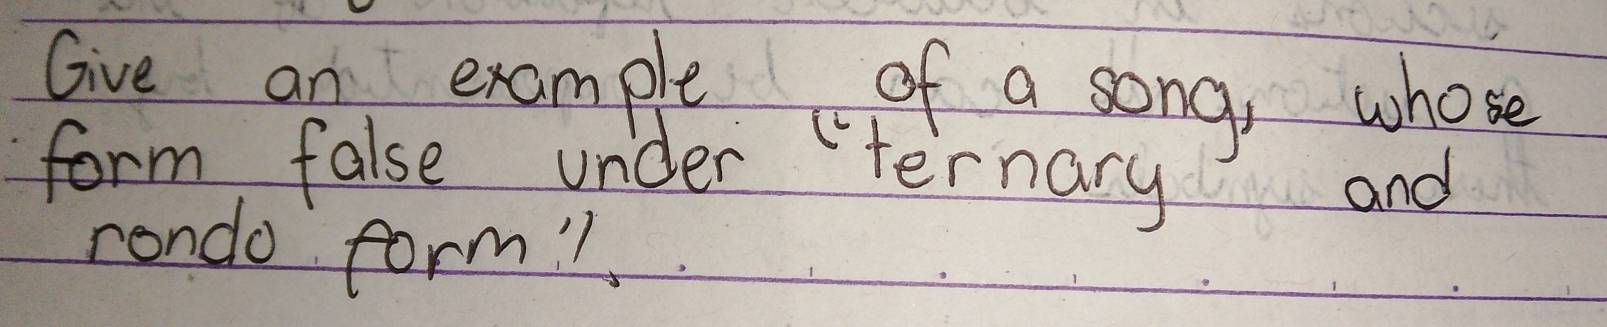 Give an example of a song, whose
form false under "ternary and
rondo form".